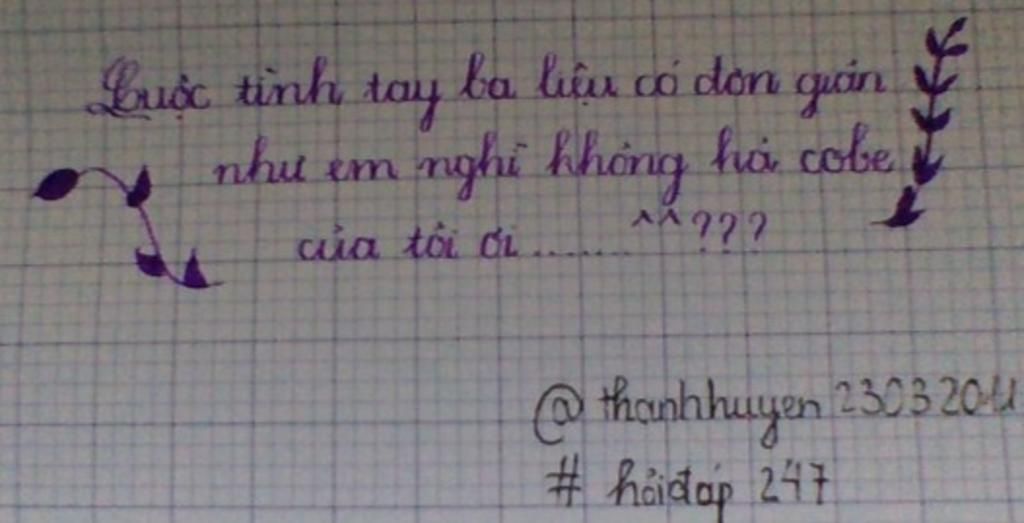 Cuộc tình tay ba liệu có đơn giản
như em nghĩ không hả cobe
của tôi ơi....... ^^???
@ thanhhuyen 23032011
# hỏiđáp 247